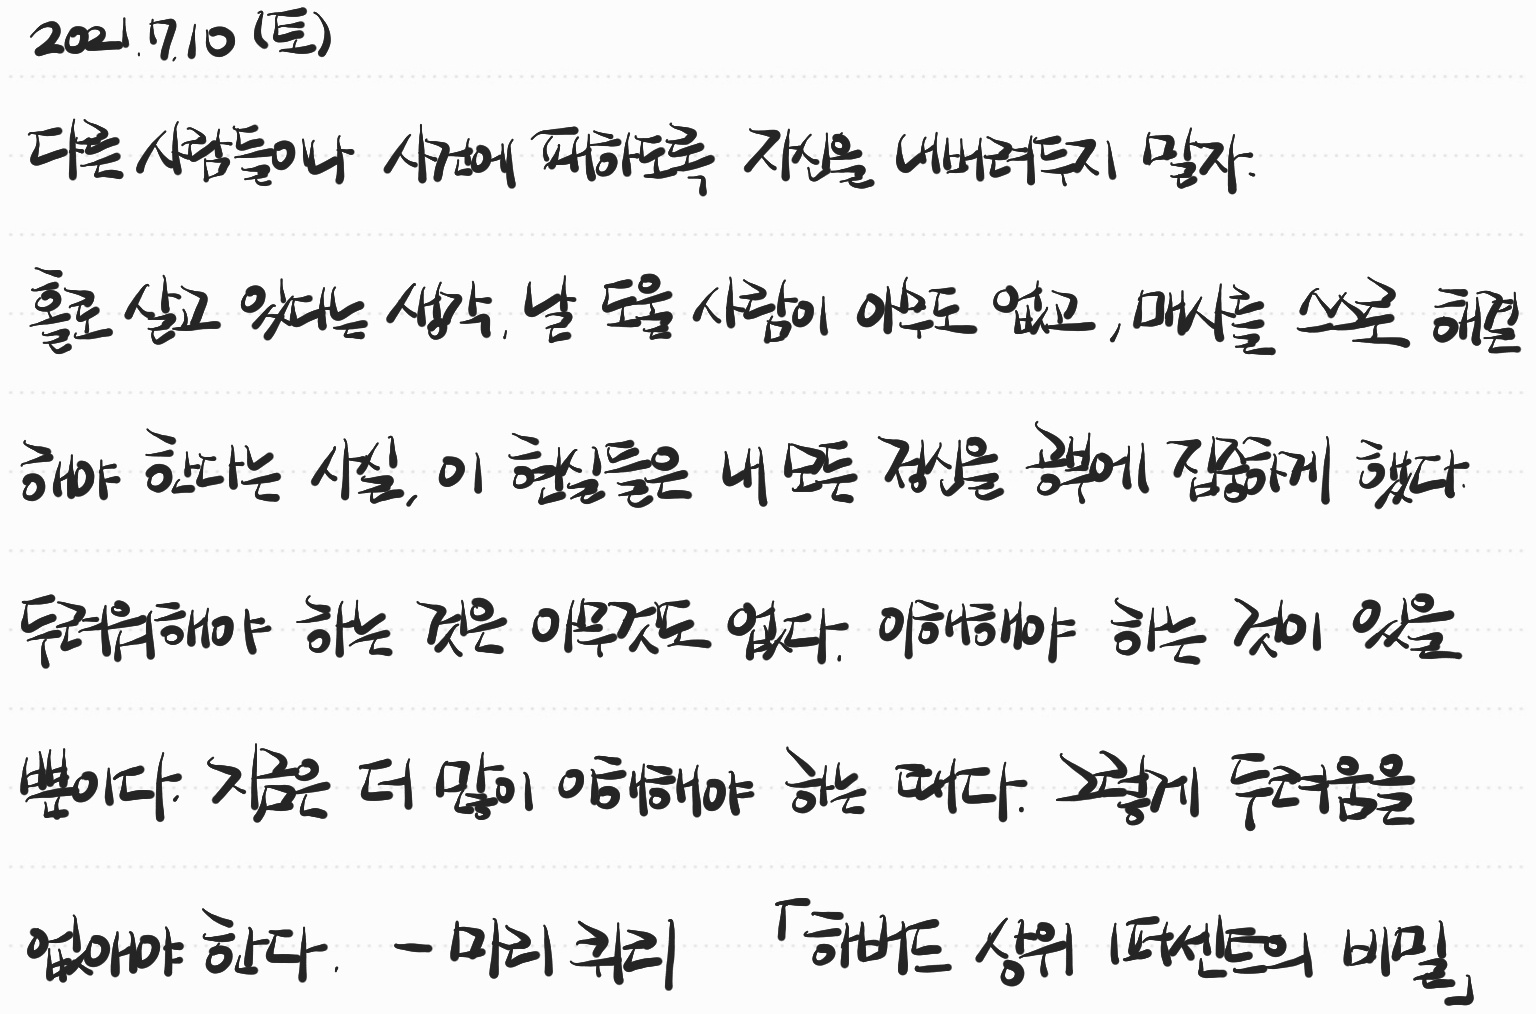 2021.7.10 (토)
다른 사람들이나 사건에 패하도록 자신을 내버려두지 말자.
홀로 살고 있다는 생각, 날 도울 사람이 아무도 없고, 매사를 스스로 해결
해야 한다는 사실, 이 현실들은 내 모든 정신을 공부에 집중하게 했다.
두려워해야 하는 것은 아무것도 없다. 이해해야 하는 것이 있을
뿐이다. 지금은 더 많이 이해해야 하는 때다. 그렇게 두려움을
없애야 한다. - 마리 퀴리 「하버드 상위 1퍼센트의 비밀」